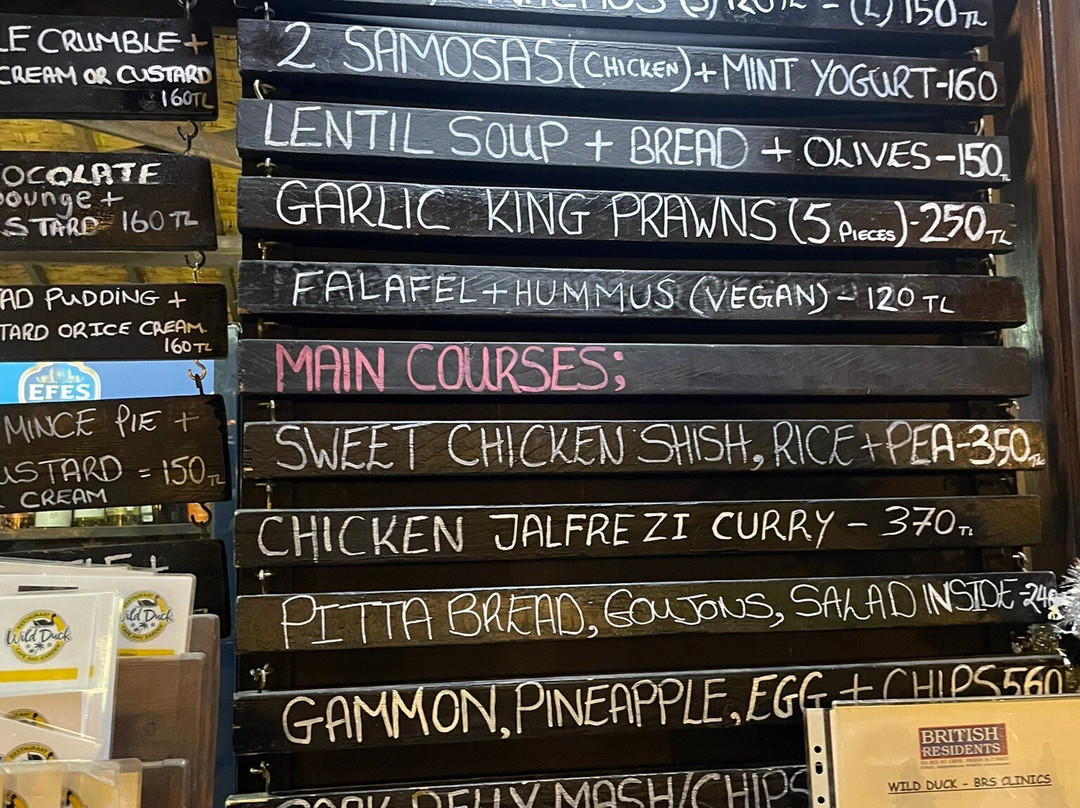 CRUMBLE +
CREAM OR CUSTARD
160TL
+
160 TL
PUDDING +
OR ICE CREAM
160TL
EFES
MINCE PIE +
= 150TL
CREAM
(S) 120TL - (L) 150TL
2 SAMOSAS (CHICKEN) + MINT YOGURT-160
LENTIL SOUP + BREAD + OLIVES-150TL
GARLIC KING PRAWNS (5 PIECES)-250TL
FALAFEL + HUMMUS (VEGAN) - 120 TL
MAIN COURSES;
SWEET CHICKEN SHISH, RICE + PEA-350TL
CHICKEN JALFREZI CURRY - 370TL
PITTA BREAD, GOUJONS, SALAD INSIDE
GAMMON, PINEAPPLE, EGG + CHIPS 560
BELLY MASH/CHIPS
RESTAURANT
Wild Duck
CAFE AND GARDEN
Wild Duck
BRITISH
RESIDENTS
WILD DUCK - BRS CLINICS